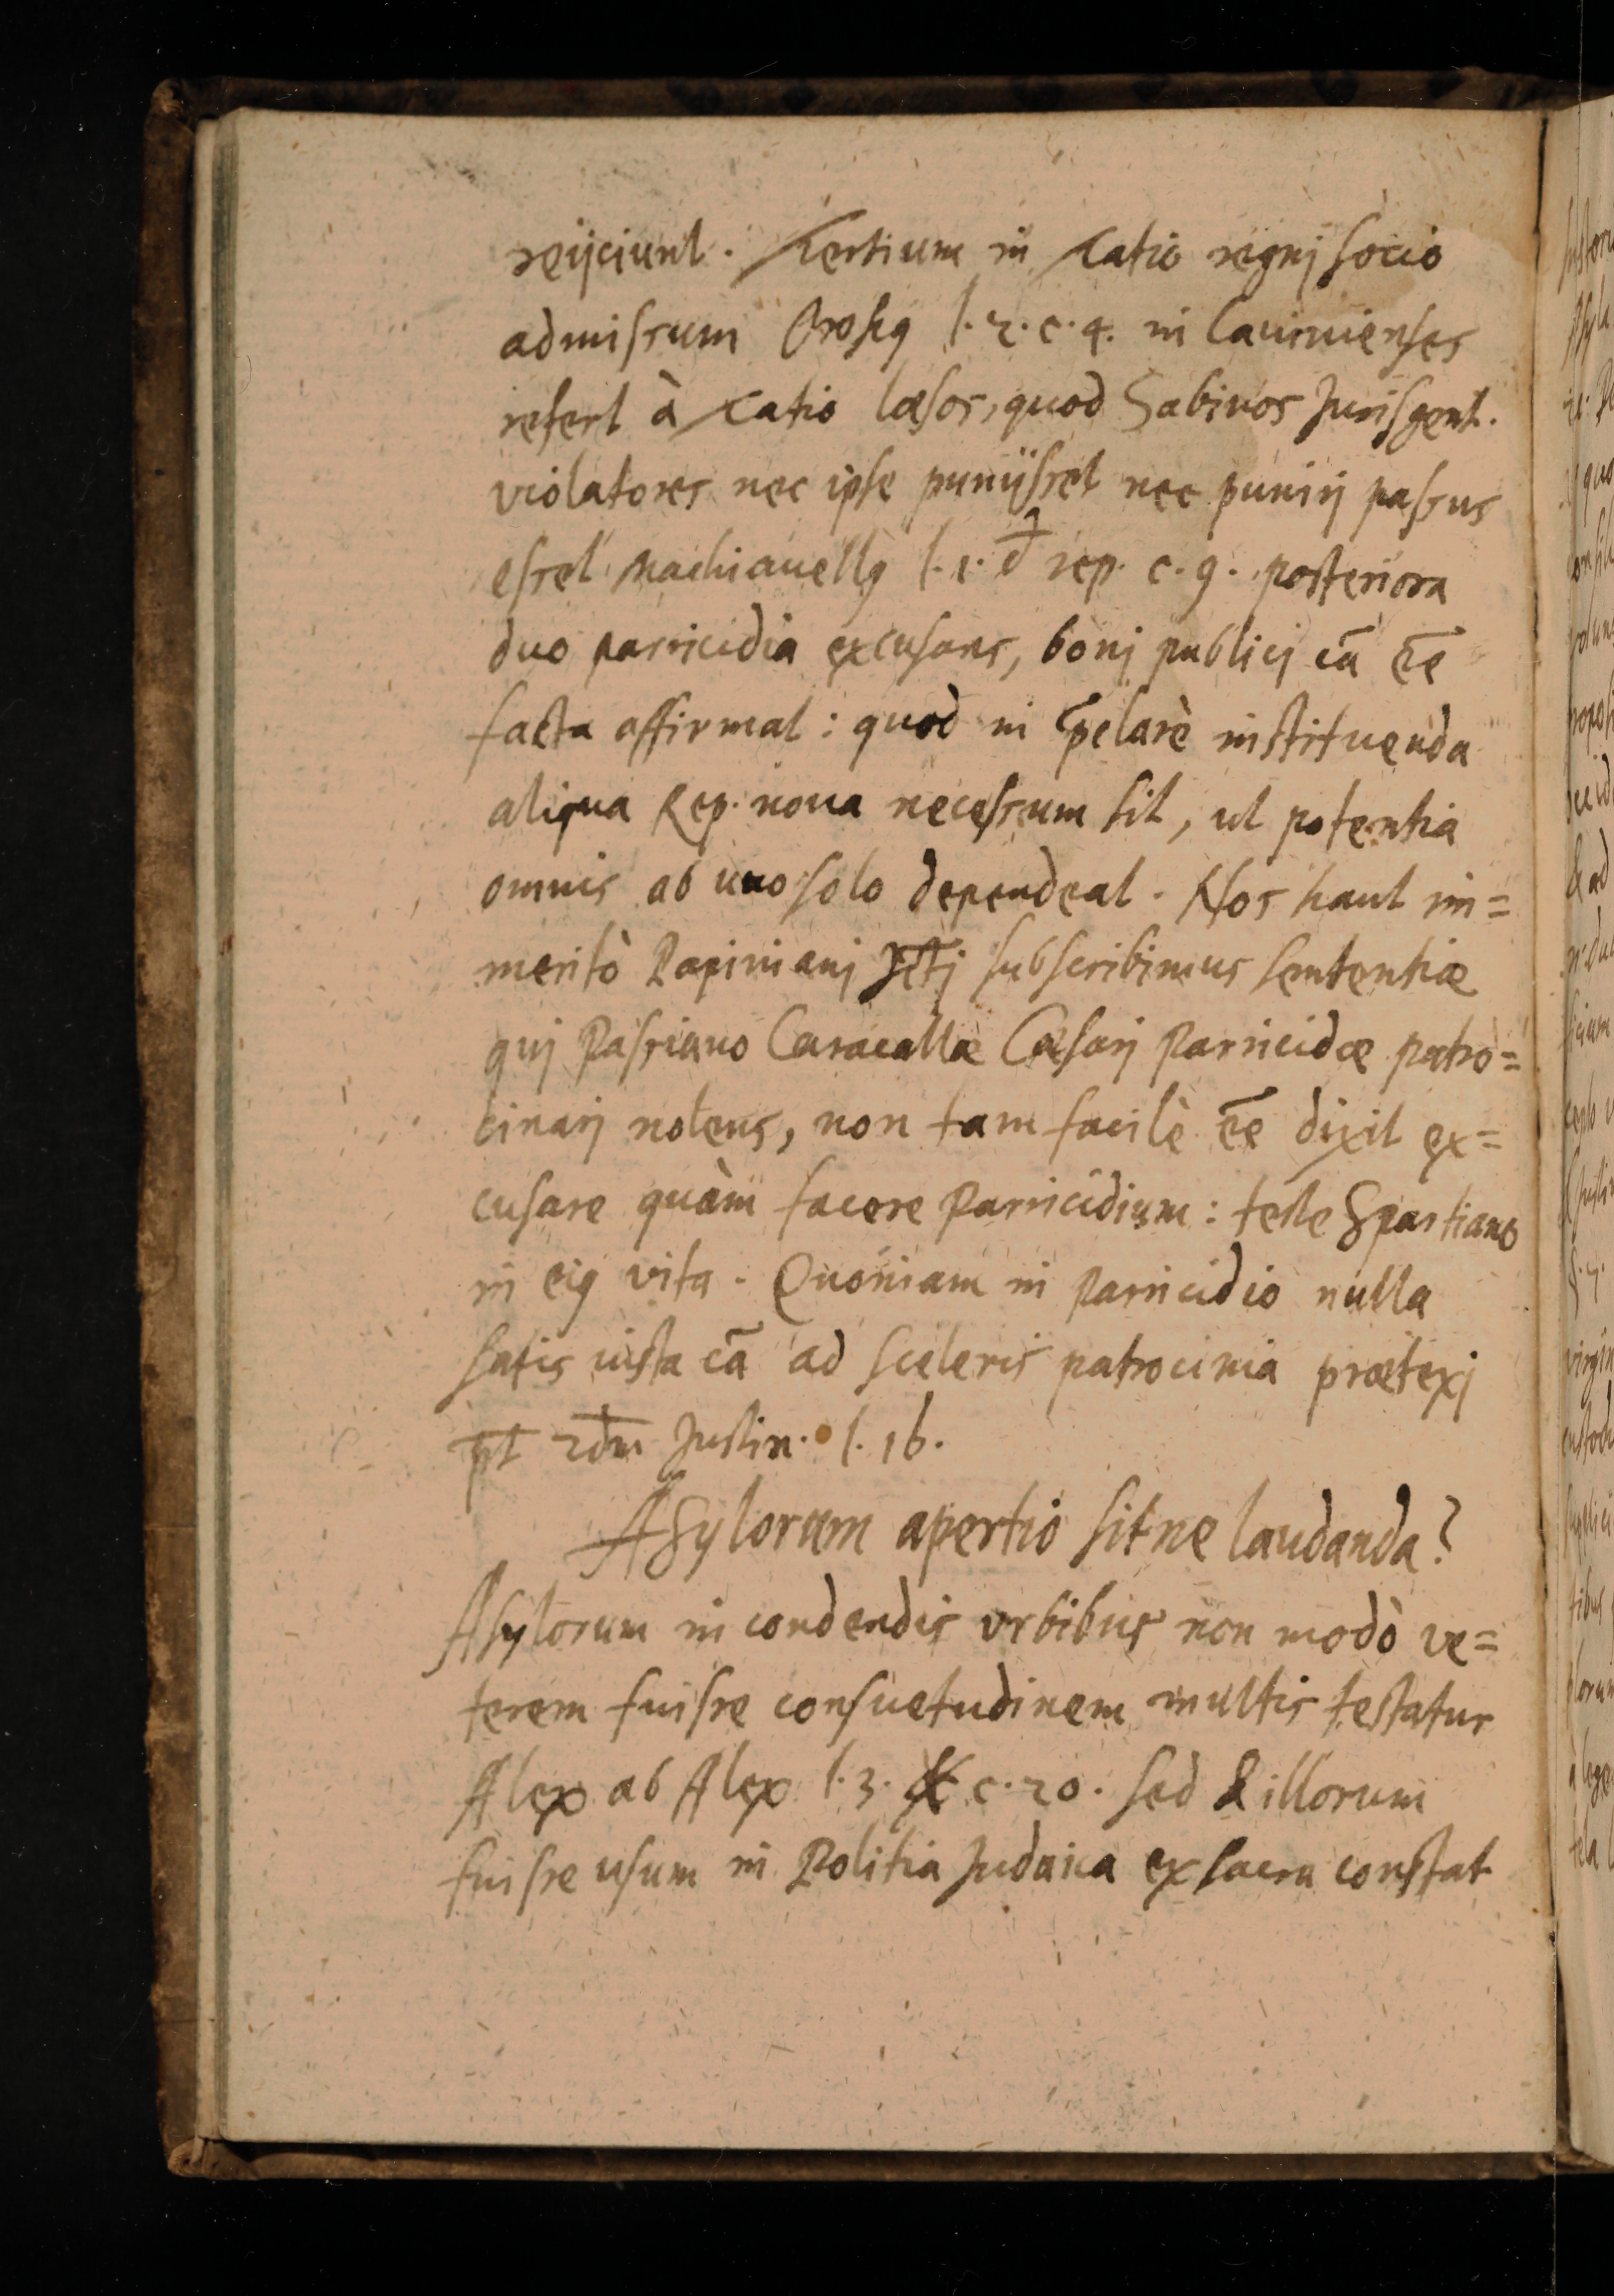 reijciunt. Tertium in Tatio regnj socio
admissum Orosiꝰ l. 2. c. 4. in Lauinienses
refert à Tatio læsos, quod Sabinos Juris gent.
violatores nec ipse punijsset nec punirj passus
esset. Machiauellꝰ l. 1. d rep. c. 9. posteriora
duo parricidia excusans, bonj publicj cā ēē
facta affirmat: quod in instituenda
aliqua Rep. noua necessum sit, ut potentia
omnis ab uno solo dependeat. Nos haut im=
meritò Papinianj JCtj subscribimus sententiæ
quj Passiano Caracallæ Cæsarj Parricidæ patro=
cinarj nolens, non tam facilè ēē dixit ex=
cusare quàm facere Parricidium: teste Spartiano
in eiꝰ vita. Quoniam in parricidio nulla
satis iusta cā ad sceleris patrocinia prætexj
pt̄ 2dm̄ Justin. l. 16.
Asylorum apertio sitne laudanda?
Asylorum in condendis vrbibus non modò ve=
terem fuisse consuetudinem multis testatur
Alex ab Alex l. 3. c. 20. sed & illorum
fuisse usum in Politia Judaica ex sacra constat